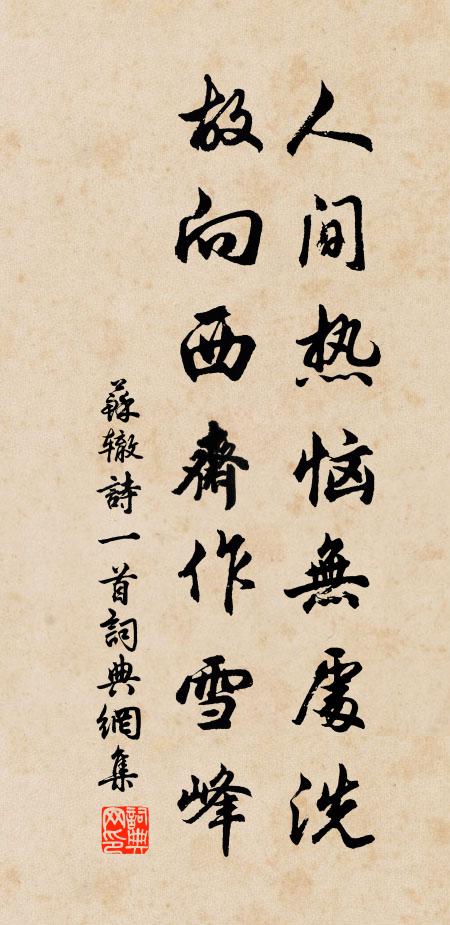 人间热恼無處洗
故向西齋作雪峰
蘇辙詩一首詞典網集
詞典网印